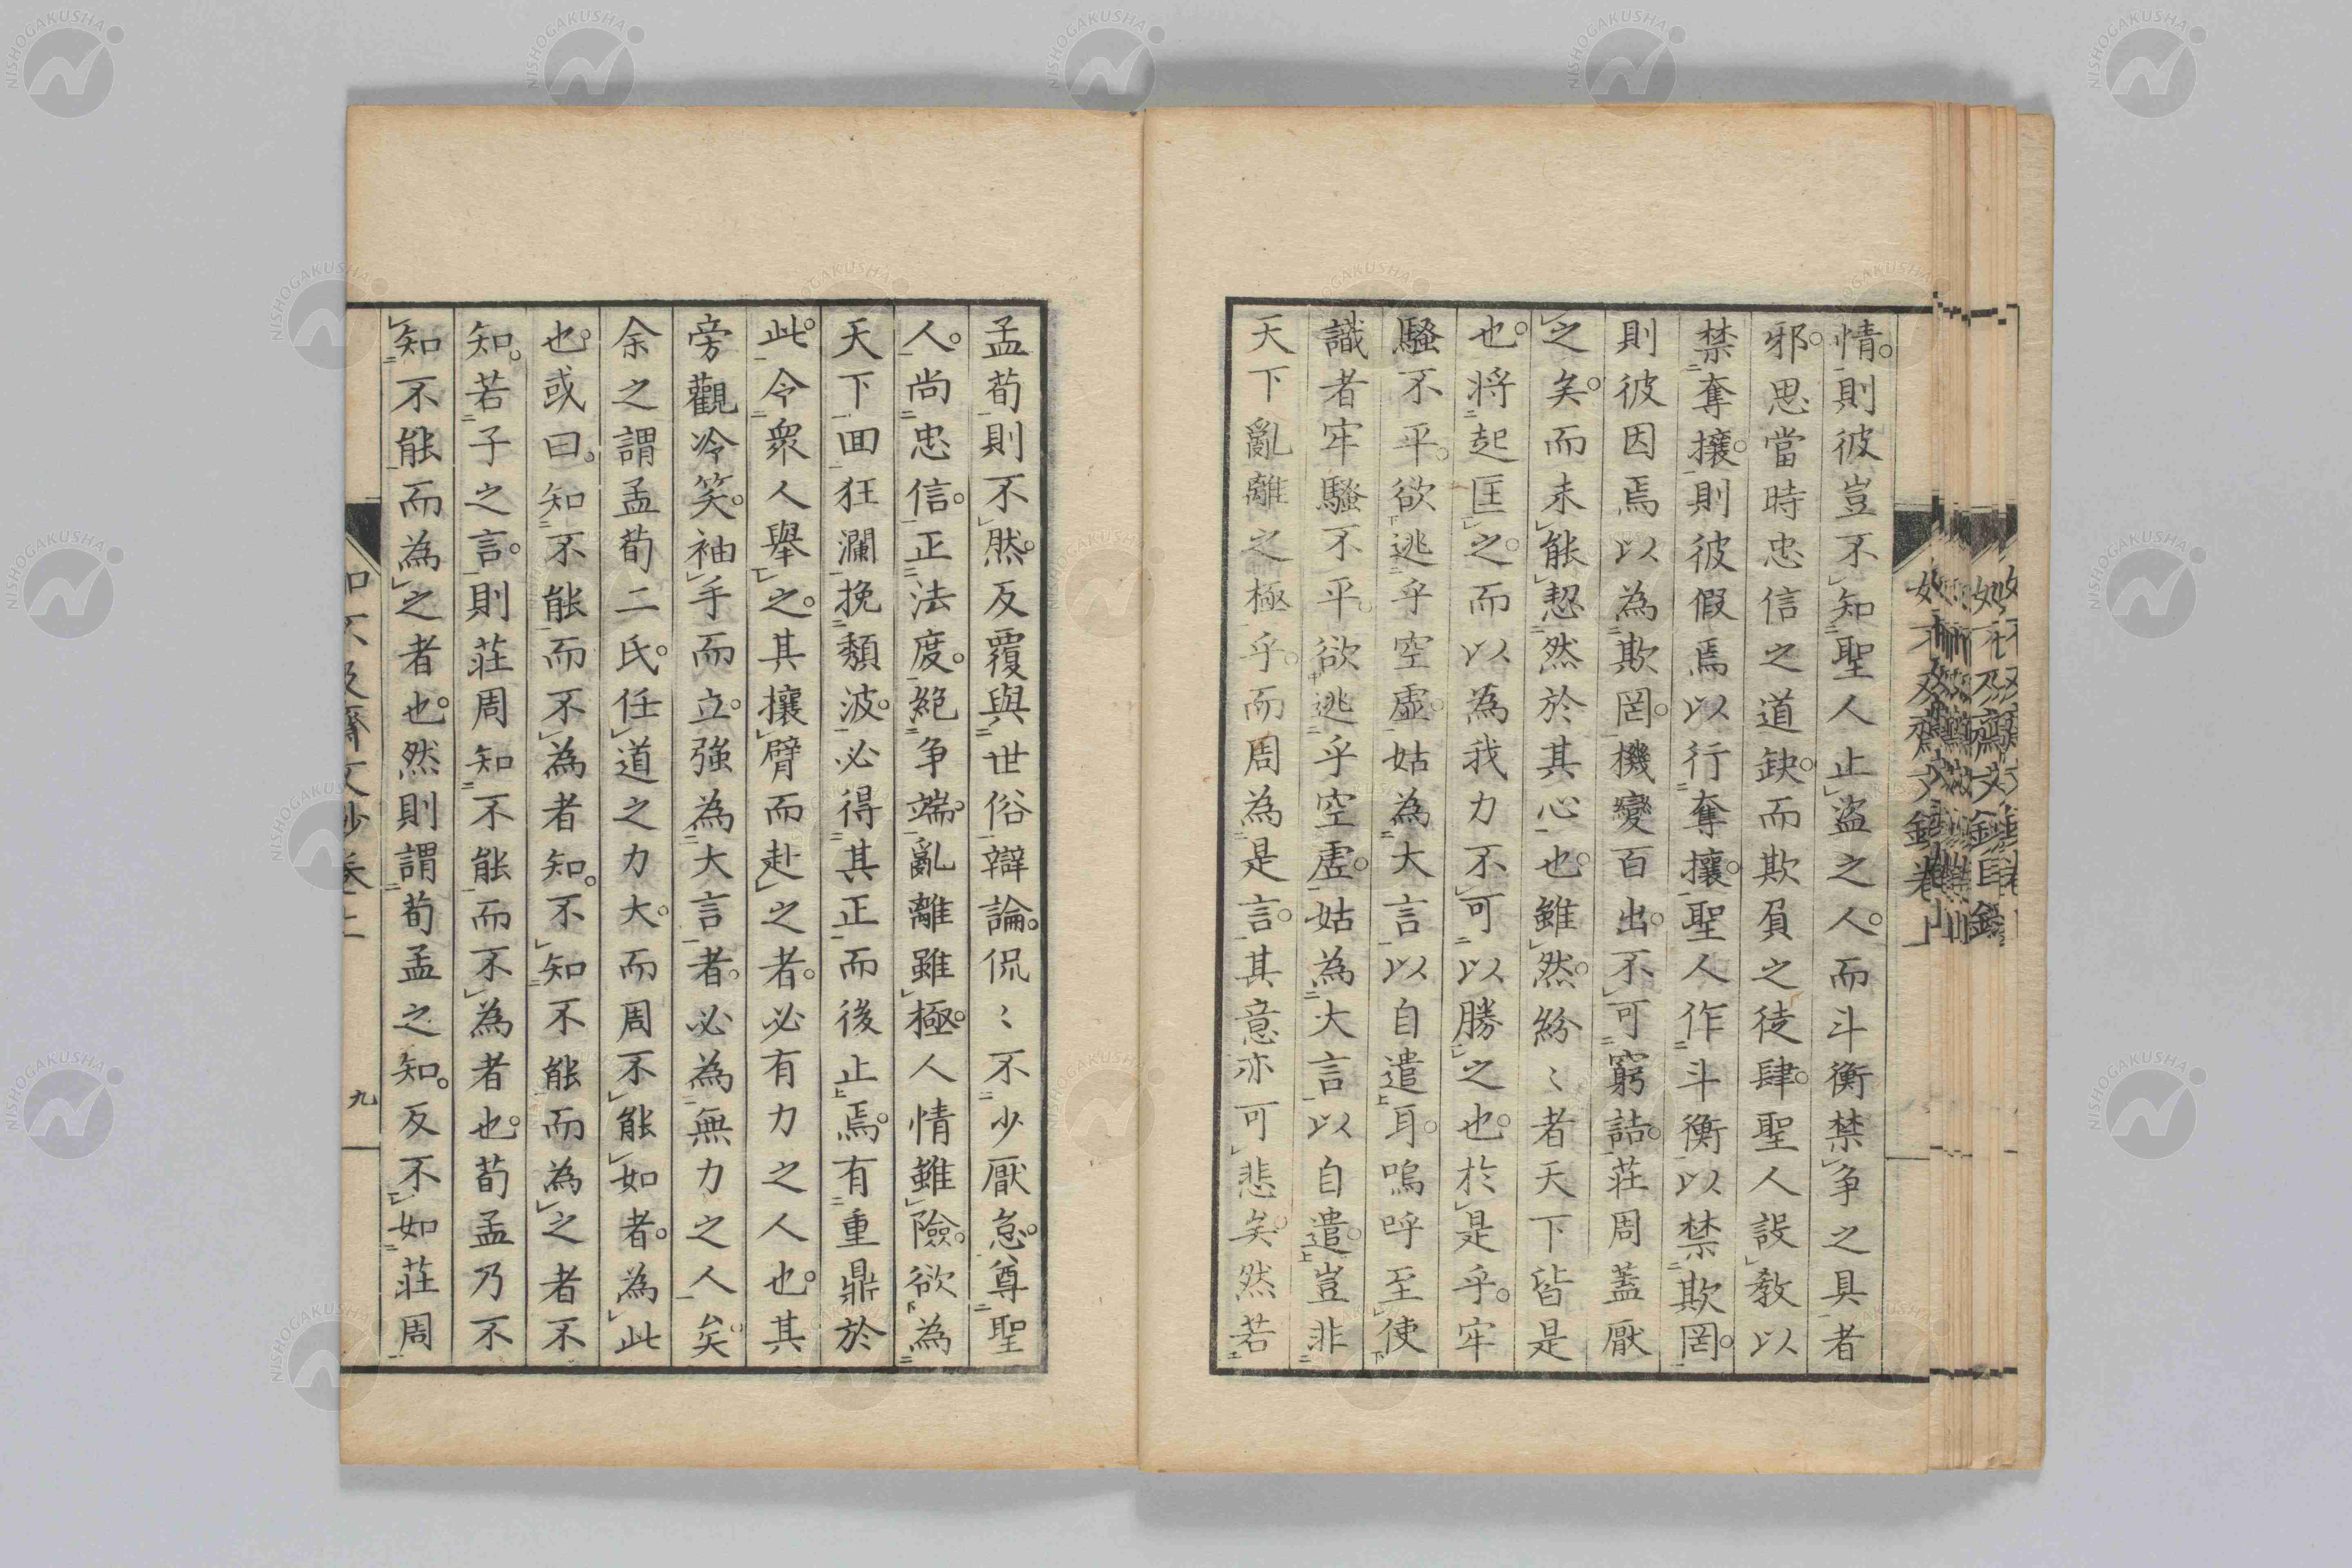 情。則彼豈不知聖人止盜之人。而斗衡禁爭之具者
邪。思當時忠信之道缺。而欺負之徒肆。聖人設教以
禁奪攘。則彼假焉以行奪攘。聖人作斗衡以禁欺罔。
則彼因焉以為欺罔。機變百出。不可窮詰。莊周蓋厭
之矣。而未能恝然於其心也。雖然。紛〻者天下皆是
也。將起匡之。而以為我力不可以勝之也。於是乎。牢
騷不平。欲逃乎空虛。姑為大言以自遣耳。嗚呼至使
識者牢騷不平。欲逃乎空虛。姑為大言以自遣。豈非
天下亂離之極乎。而周為是言。其意亦可悲矣。然若
孟荀則不然。反覆與世俗辯論。侃〻不少厭怠。尊聖
人。尚忠信。正法度。絕爭端。亂離雖極。人情雖險。欲為
天下回狂瀾挽頽波。必得其正而後止焉。有重鼎於
此。令衆人舉之。其攘臂而赴之者。必有力之人也。其
旁觀冷笑。袖手而立。強為大言者。必為無力之人矣。
余之謂孟荀二氏。任道之力大。而周不能如者。為此
也。或曰。知不能而不為者知。不知不能而為之者不
知。若子之言。則莊周知不能而不為者也。荀孟乃不
知不能而為之者也。然則謂荀孟之知。反不如莊周
九
NISHOGAKUSHA